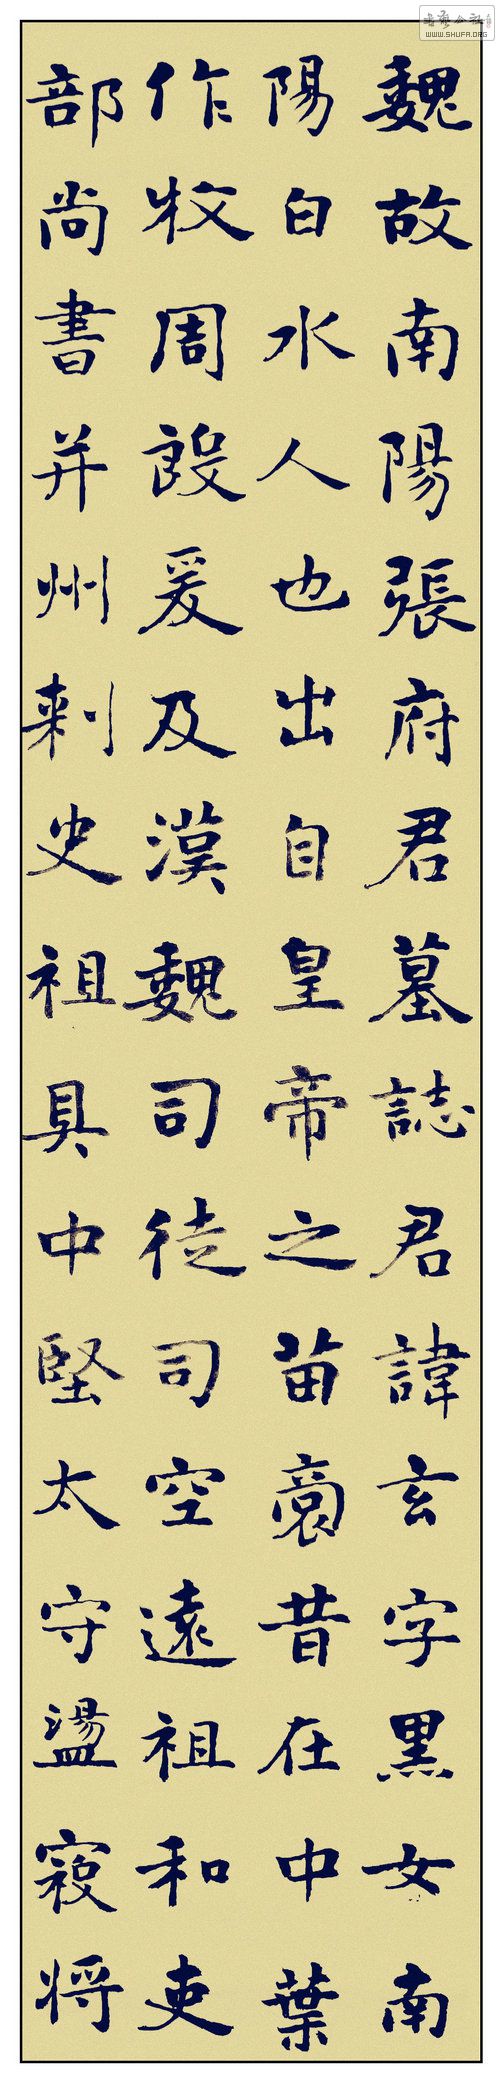 魏故南陽張府君墓誌君諱玄字黑女南
陽白水人也出自皇帝之苗裔昔在中葉
作牧周殷爰及漢魏司徒司空遠祖和吏
部尚書并州刺史祖具中堅太守盪寇將
WWW.SHUFA.ORG